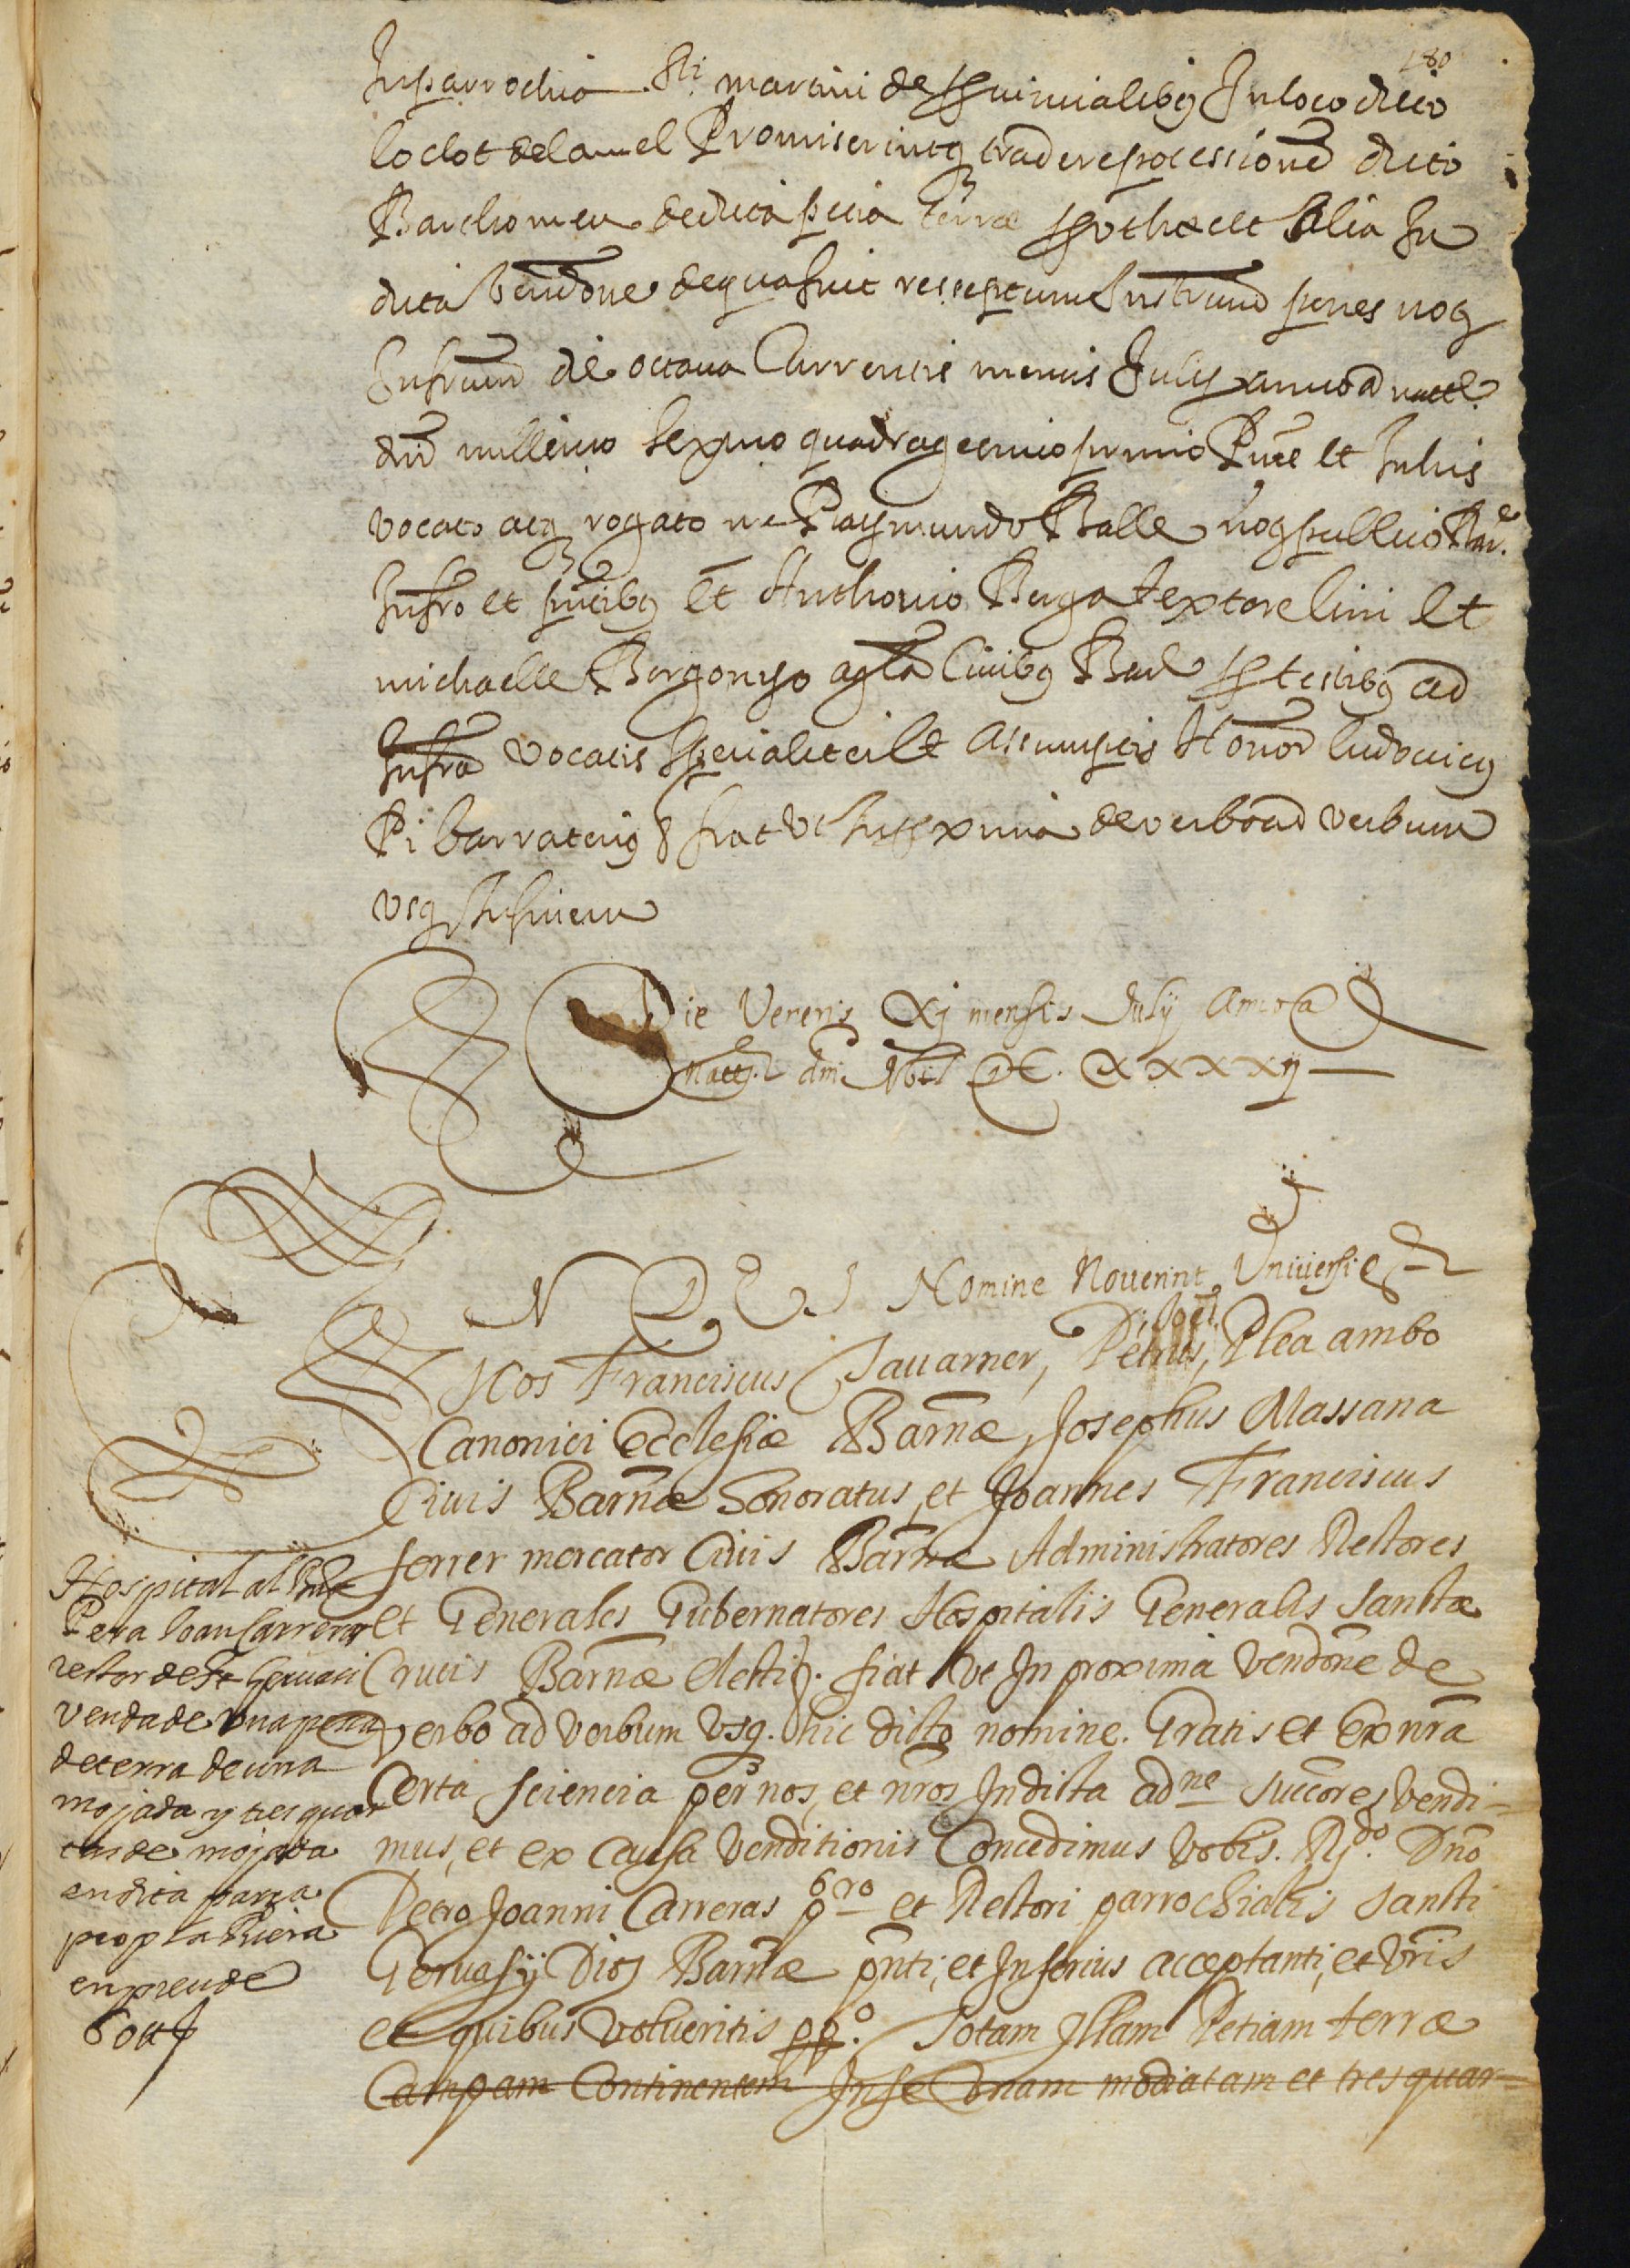 180
In parrochia Sti. martini de Provincialibg In loco dicto
lo clot de la mel Promiserintq tradere pocessione dicto
Barthomeu de dicta pecia terræ hypothecæ et alia In
dicta vendone de qua fuit resceptum Instrumd penes nog
Infrum die octava Currentis mensis Julij anno a nattᵉ.
dni millimo sexmo quadragesimo primo Pnte et Inhis
vocato atq rogato me Raymundo Batlle nog publico Barᵉ.
Infro et pntibg et Anthonio Puga textore lini et
michaelle Borgonyo agla Civibg Bar p testibg ad
Infra vocatis specialiter et assumptis Honor Ludovicg
Pi barraterig & fiat ut In proxima de verbo ad verbum
usq In finem
Die Veneris Xij mensis Julij Anno a
Natt. dni M DC. XXXXIJ
IN DEI Nomine Noverint Universi
Nos Franciscus Tavarner, Petrus, Plea ambo
Canonici Ecclesiæ Barnæ, Josephus Massana
Civis Barnæ honoratus, et Joannes Franciscus
ferrer mercator Civis Barnæ Administratores Rectores
et Generales Gubernatores Hospitalis Generalis Sanctæ
Crucis Barnæ electi &. fiat ut In proxima vendone de
verbo ad verbum usq. hic dicto nomine. Gratis et Ex nra
Certa sciencia per nos, et nros In dicta adne succores vendi=
mus, et ex causa venditionis Concedimus vobis. Rdo. Dno
Petro Joanni Carreras pbro et Rectori parrochialis Sancti
Gervasij Dios Barnæ pnti, et Inferius acceptanti, et vris
et quibus volueritis ppo. Totam Illam Petiam terræ
Campam Continentem In se Unam modiatam et tres quar=
Hospital al Rnt
Pera Joan Carreras
rector de St Gervasi
Venda de una pessa
de terra de una
mojada y tres quar
tas de mojada
en dita parra
prop la Riera
en preu de
60tt